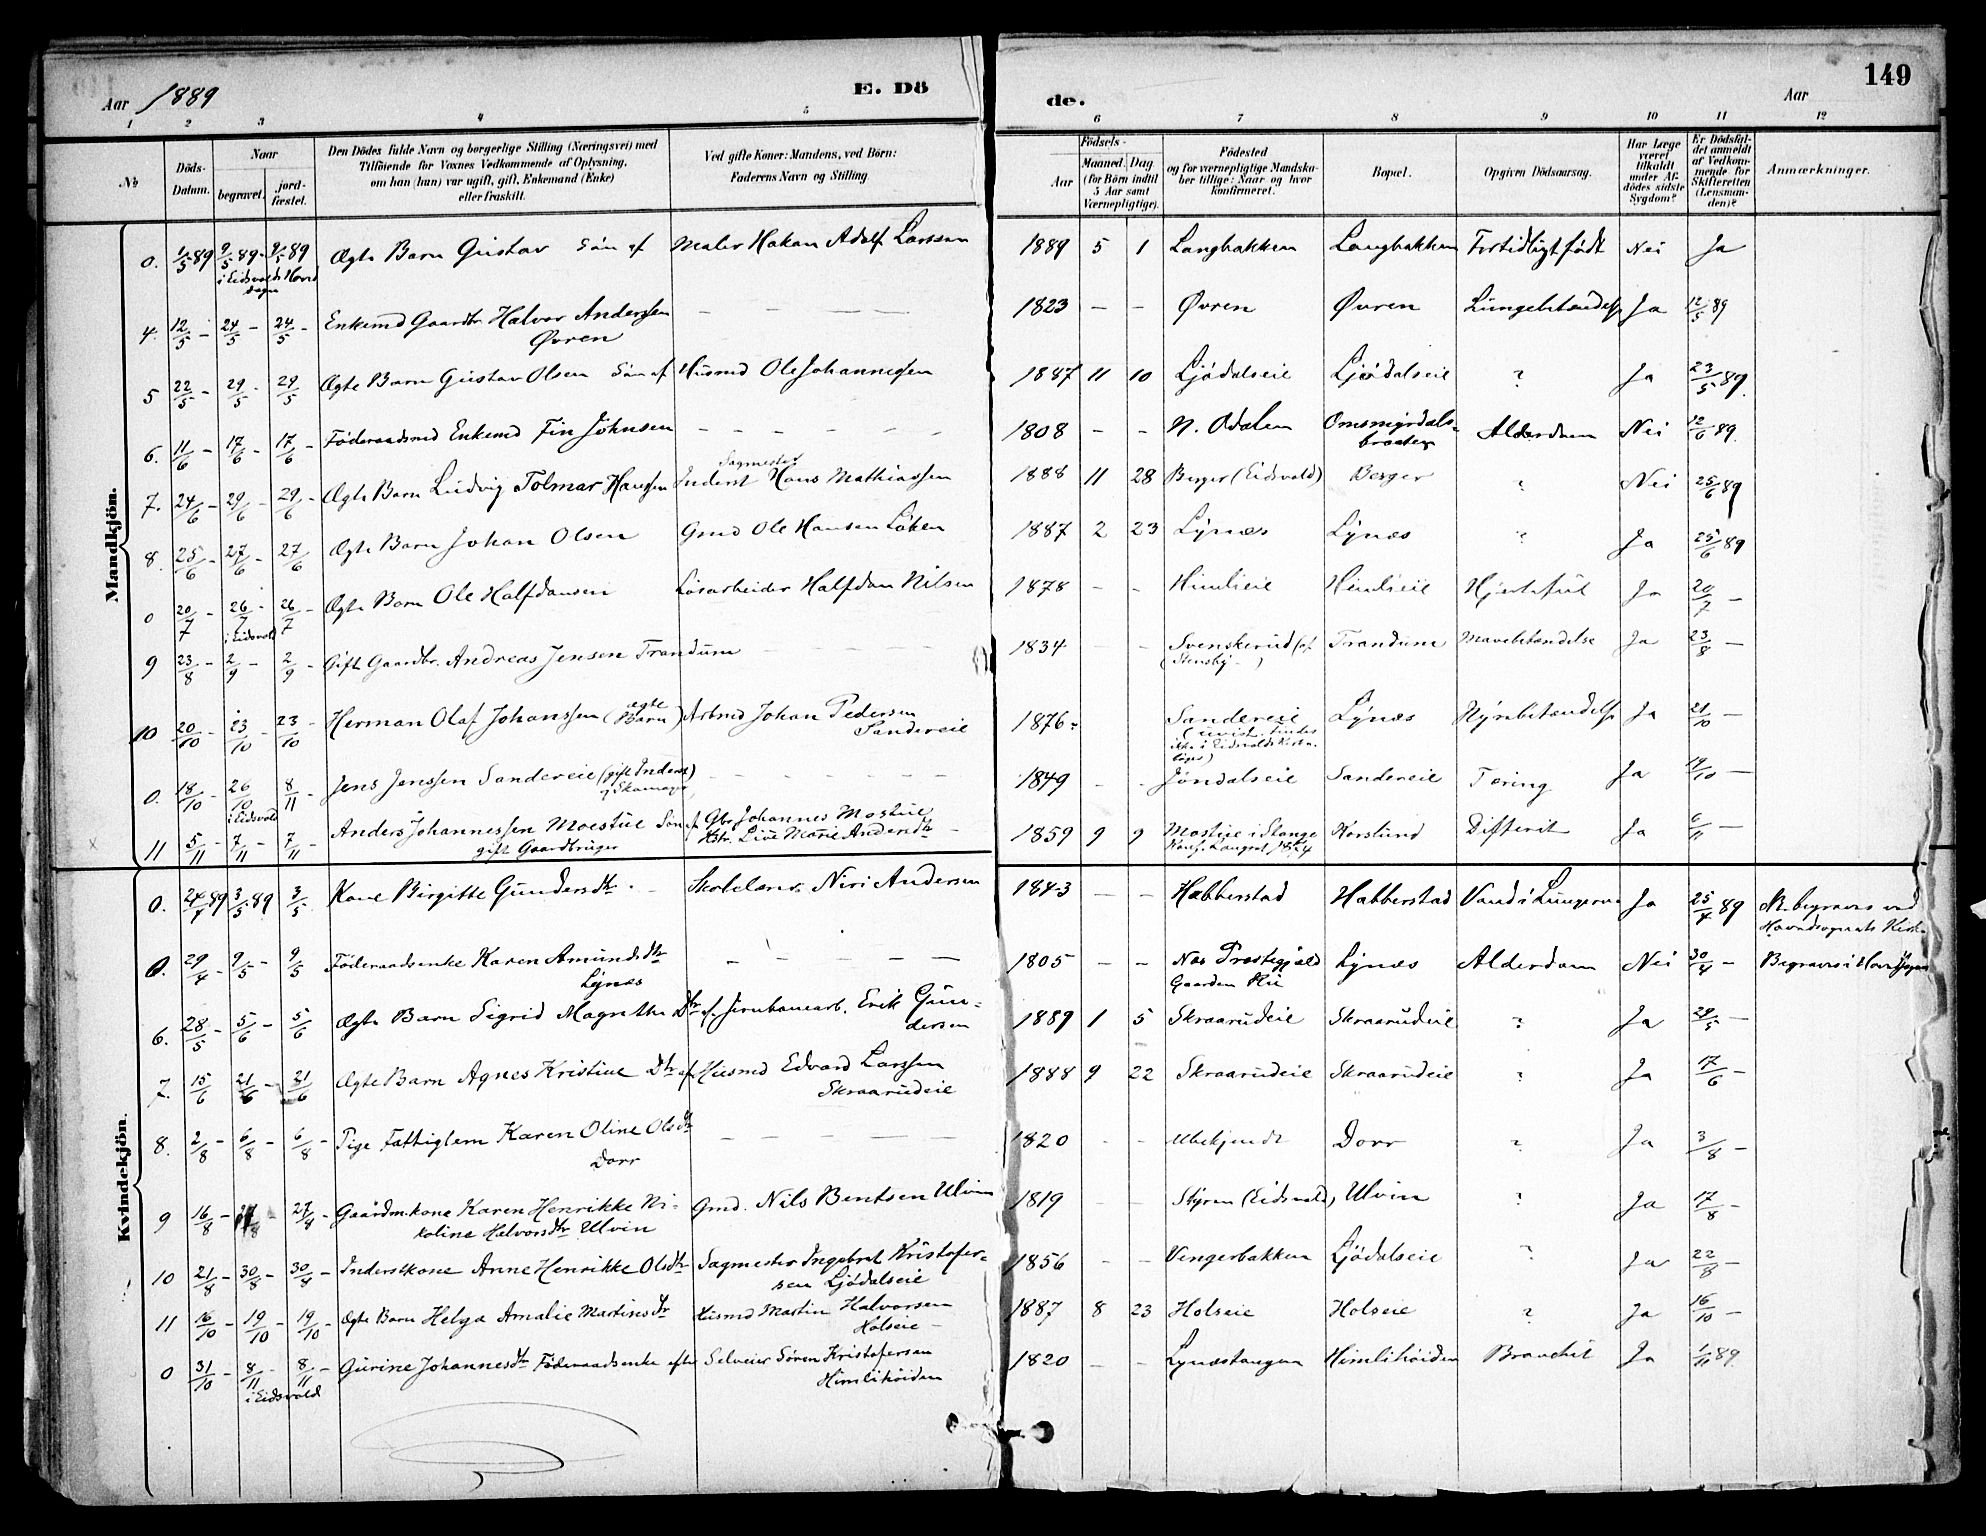 149
Aar 1889
E. Dö
de.
Aar
1 2 3 4 5 6 7 8 9 10 11 12
№
Döds-Datum.
Naar
begravet.
jord-fæstet.
Den Dödes fulde Navn og borgerlige Stilling (Næringsvei) med
Tilföiende for Voxnes Vedkommende af Oplysning,
om han (hun) var ugift, gift, Enkemand (Enke)
eller fraskilt.
Ved gifte Koner: Mandens, ved Börn:
Faderens Navn og Stilling
Födsels-
Aar
Maaned. Dag
(for Börn indtil
5 Aar samt
Værnepligtige).
Födested
og for værnepligtige Mandska-
ber tillige: Naar og hvor
konfirmeret.
Bopæl.
Opgiven Dödsaarsag.
Har Læge
været
tilkaldt
under Af-
dödes sidste
Sygdom?
Er Dödsfal-
det anmeldt
af Vedkom-
mende for
Skifteretten
(Lensman-
den)?
Anmærkninger.
Mandkjön.
0. 1/5 89 9/5 89 9/5 89 Ægte Barn Gustav Sön af Maler Hakan Adolf Larssen 1889 5 1 Langbakken Langbakken Fortidligt födt Nei Ja
i Eidsvolds Hoved
sogn
4. 12/5 - 24/5 - 24/5 - Enkemd Gaardbr. Halvor Anderssen - - - 1823 - - Øvren Øvren Lungebetændelse Ja 12/5 89
Øvren
5 22/5 - 29/5 - 29/5 - Ægte Barn Gustav Olsen Sön af Husmd Ole Johannessen 1887 11 10 Ljödalseie Ljödalseie ? Ja 23/5 89.
6. 11/6 - 17/6 - 17/6 - Föderaadsmd Enkemd Fin Johnsen - - - 1808 - - N. Odalen Alderdom Nei 12/6 89.
braaten
Sagmester
7. 24/6 - 29/6 - 29/6 - Ægte Barn Ludvig Tolmar Hansen Inderst Hans Mathiassen 1888 11 28 Berger (Eidsvold) Berger ? Nei 25/6 89
8. 25/6 - 27/6 - 27/6 Ægte Barn Johan Olsen Gmd Ole Hansen Löken 1887 2 23 Lynæs Lynæs ? Ja 25/6 89
0 20/7 - 26/7 - 26/7 - Ægte Barn Ole Halfdansen Lösarbeider Halfdan Nilsen 1878 - - Himlieie Himlieie Hjertefeil Ja 20/7 -
i Eidsvold
9 23/8 - 2/9 - 2/9 - Gift Gaardbr. Andreas Jensen Trandum - - - 1834 - - Svenskerud (af Trandum Mavebetændelse Ja 23/8 -
(Stensby - )
10 20/10 - 23/10 - 23/10 - Herman Olaf Johanssen (ægte Barn) Arbmd Johan Pedersen 1876 Sandereie Lynæs Nyrebetændelse Ja 21/10 -
Sandereie
0. 18/10 - 26/10 8/11 Jens Jenssen Sandereie (gift Inderst - - - 1849 - - Jöndalseie Sandereie Tæring Ja 19/10 -
i Eidsvold
11 5/11 - 7/11 - 7/11 - Anders Johannessen Moestue Sön af Gbr Johannes Mostue 1859 9 9 Mostue i Stange Korslund Difterit Ja 6/11 -
gift Gaardbruger
Kvindekjön.
0. 24/4 89 3/5 89 3/5 Kone Birgitte Gundersdtr - Skolelærer Niri Andersen 1843 - - Habberstad Habberstad Vand i Lungerne Ja 25/4 89 begraves ved
Hovedsognets Kirke
0. 29/4 - 9/5 - 9/5 Föderaadsenke Karen Amundsdtr - - - 1805 - - Næs Præstegjeld Lynæs Alderdom Nei 30/4 - Begraves i Hovedsogn
Lynæs Gaarden
6. 28/5 - 5/6 - 5/6 Ægte Barn Sigrid Magrethe Dtr af Jernbanearb. Erik Gun- 1889 1 5 Skraarudeie Skraarudeie ? Ja 29/5 -
dersen
7. 15/6 21/6 - 21/6 Ægte Barn Agnes Kristine Dtr af Husmd Edvard Larssen 1888 9 22 Skraarudeie Skraarudeie ? Ja 17/6 -
Skraarudeie
8. 2/8 - 6/8 - 6/8 - Pige Fattiglem Karen Oline Olsdtr - - - 1820 - - Ubekjendt Dorr ? Ja 3/8 -
Dorr
9 16/8 - 27/8 - 27/8 - Gaardmkone Karen Henrikke Ni- Gmd. Nils Bentsen Ulvin 1819 - - Styren (Eidsvold) Ulvin ? Ja 17/8 -
koline Halvorsdtr Ulvin
10 21/8 - 30/8 - 30/8 - Inderstkone Anne Henrikke Olsdtr Sagmester Ingebret Kristofer- 1856 - - Vengerbakken Ljödalseie ? Ja 22/8 -
sen Ljödalseie
11 16/10 - 19/10 - 19/10 - Ægte Barn Helga Amalie Martinsdtr Husmd Martin Halvorsen 1887 8 23 Holseie Holseie ? Ja 16/10 -
Holseie -
0 31/10 - 8/11 - 8/11 - Gurine Johannesdtr Föderaadsenke efter Selveier Sören Kristofersen 1820 - - Lynæstangen Himlihöiden Ja 1/11 89
i Eidsvold Himlihöiden